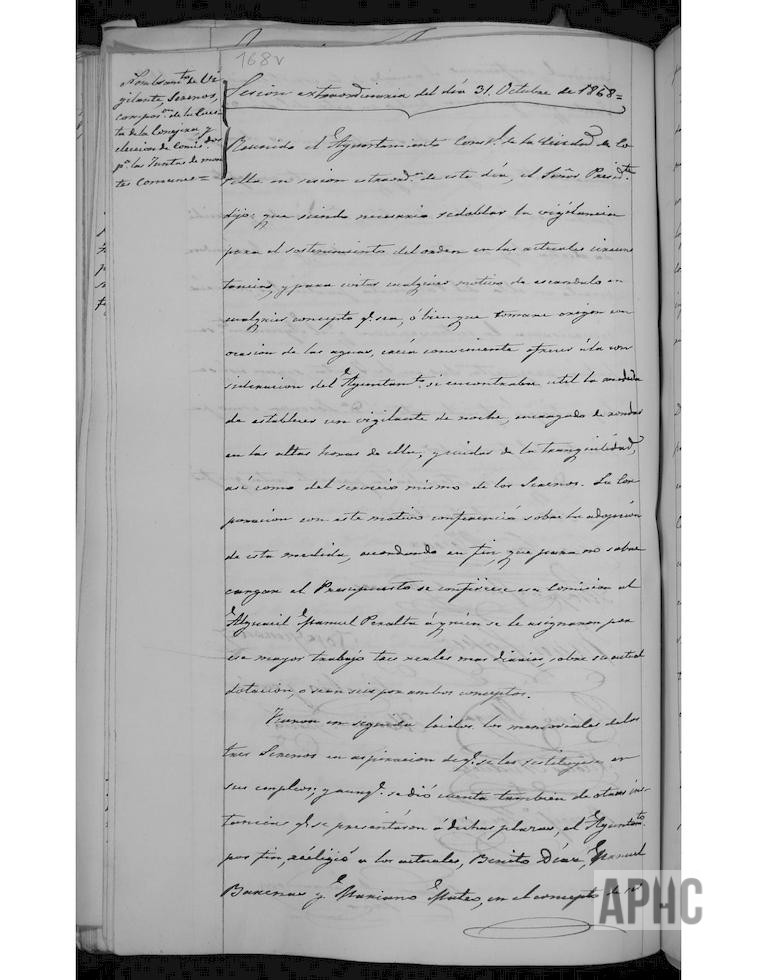 168v
Nombramto de Vi-
gilante, Serenos,
compos.on de la Cues-
ta de la Conejera y
eleccion de Comis.dos
p.a las Juntas de mon-
tes Comunes=
Sesion extraordinaria del dia 31 Octubre de 1868=
Reunido el Ayuntamiento Const.l de la Ciudad de Co-
rella en sesion estraord.a de este dia, el Señor Presid.te
dijo: que siendo necesario redoblar la vigilancia
para el sostenimiento del orden en las actuales circuns-
tancias, y para evitar cualquier motivo de escandalo en
cualquier concepto q.e sea, ó bien que tomare origen con
ocasion de las aguas, creia conveniente ofrecer á la con
sideracion del Ayuntam.to si encontraba util la medida
de establecer un vigilante de noche, encargado de rondar
en las altas horas de ella, y cuidar de la tranquilidad,
asi como del servicio mismo de los Serenos. La Cor-
poracion con este motivo conferenció sobre la adopcion
de esta medida, acordando en fin, que para no sobre
cargar el Presupuesto se confiriese esa Comision al
Alguacil Manuel Peralta á quien se le asignaron por
ese mayor trabajo tres reales mas diarios sobre su actual
dotacion, o sean seis por ambos conceptos.
Fueron en seguida leidos los memoriales de los
tres Serenos en aspiracion de q.e se les en
sus empleos; y aunq.e se dió cuenta tambien de otras ins-
tancias q.e se presentáron á dichas plazas, el Ayuntam.to
por fin, reéligió a los actuales, Benito Díaz, Manuel
Barcenas y Mariano Mateo, en el concepto de
APHC